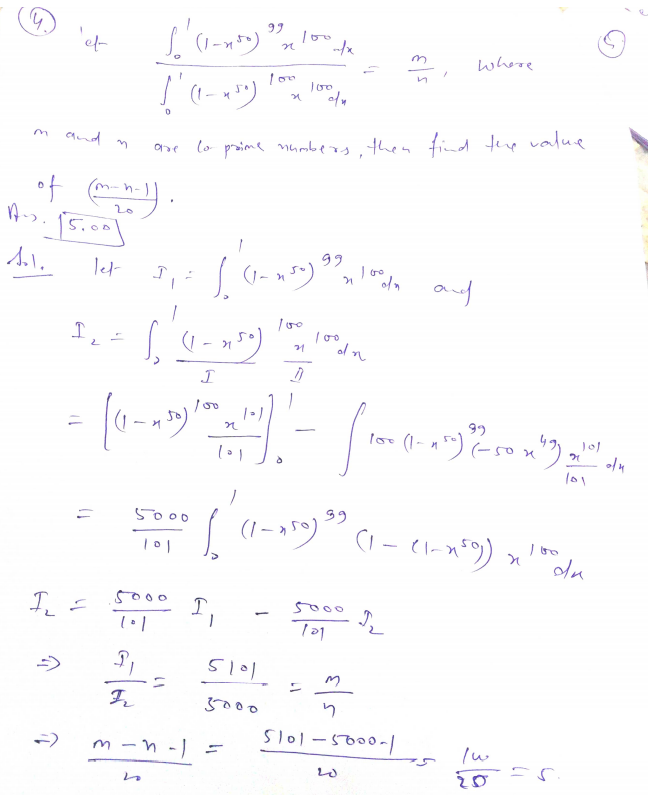 (4.)
let ∫₀¹ (1-x⁵⁰)⁹⁹ x¹⁰⁰ dx / ∫₀¹ (1-x⁵⁰)¹⁰⁰ x¹⁰⁰ dx = m/n, where
(5)
m and n are co prime numbers, then find the value
of (m-n-1)/20.
Ans. 5.00
Sol. let I₁ = ∫₀¹ (1-x⁵⁰)⁹⁹ x¹⁰⁰ dx and
I₂ = ∫₀¹ (1-x⁵⁰)¹⁰⁰ x¹⁰⁰ dx
I II
= [(1-x⁵⁰)¹⁰⁰ x¹⁰¹/101]₀¹ - ∫ 100 (1-x⁵⁰)⁹⁹ (-50 x⁴⁹) x¹⁰¹/101 dx
= 5000/101 ∫₀¹ (1-x⁵⁰)⁹⁹ (1-(1-x⁵⁰)) x¹⁰⁰ dx
I₂ = 5000/101 I₁ - 5000/101 I₂
⇒ I₁/I₂ = 5101/5000 = m/n
⇒ (m-n-1)/20 = (5101-5000-1)/20 = 100/20 = 5.